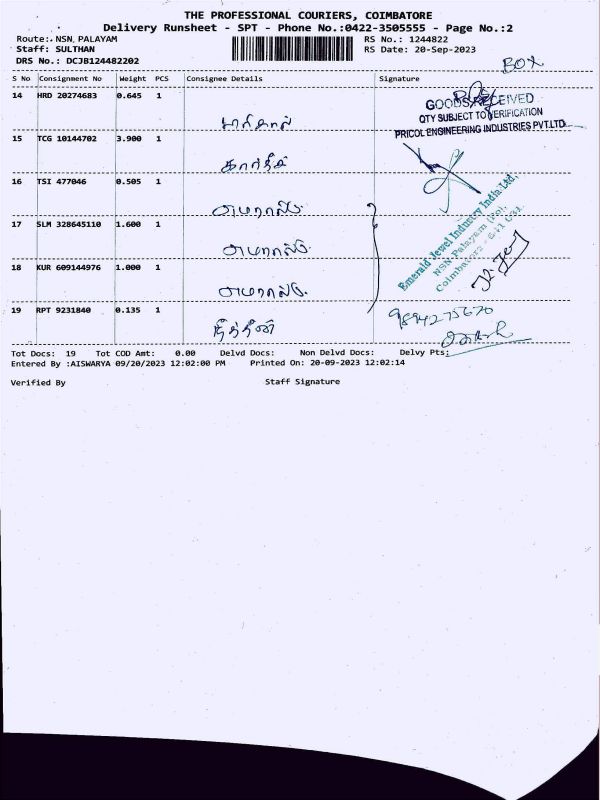 THE PROFESSIONAL COURIERS, COIMBATORE
Delivery Runsheet - SPT - Phone No.:0422-3505555 - Page No.:2
Route:. NSN, PALAYAM RS No.: 1244822
Staff: SULTHAN RS Date: 20-Sep-2023
DRS No.: DCJB124482202
BOX
S No Consignment No Weight PCS Consignee Details Signature
14 HRD 20274683 0.645 1
GOODS RECEIVED
QTY SUBJECT TO VERIFICATION
PRICOL ENGINEERING INDUSTRIES PVT.LTD.
15 TCG 10144702 3.900 1
கார்த்திக்
16 TSI 477046 0.505 1
எமரால்டு
17 SLM 328645110 1.600 1
எமரால்டு
18 KUR 609144976 1.000 1
எமரால்டு
Emerald Jewel Industry India Ltd,
NSN-Palayam (Po),
Coimbatore - 641 031.
19 RPT 9231840 0.135 1
நித்தின்
9894275670
Tot Docs: 19 Tot COD Amt: 0.00 Delvd Docs: Non Delvd Docs: Delvy Pts:
Entered By :AISWARYA 09/20/2023 12:02:00 PM Printed On: 20-09-2023 12:02:14
Verified By Staff Signature